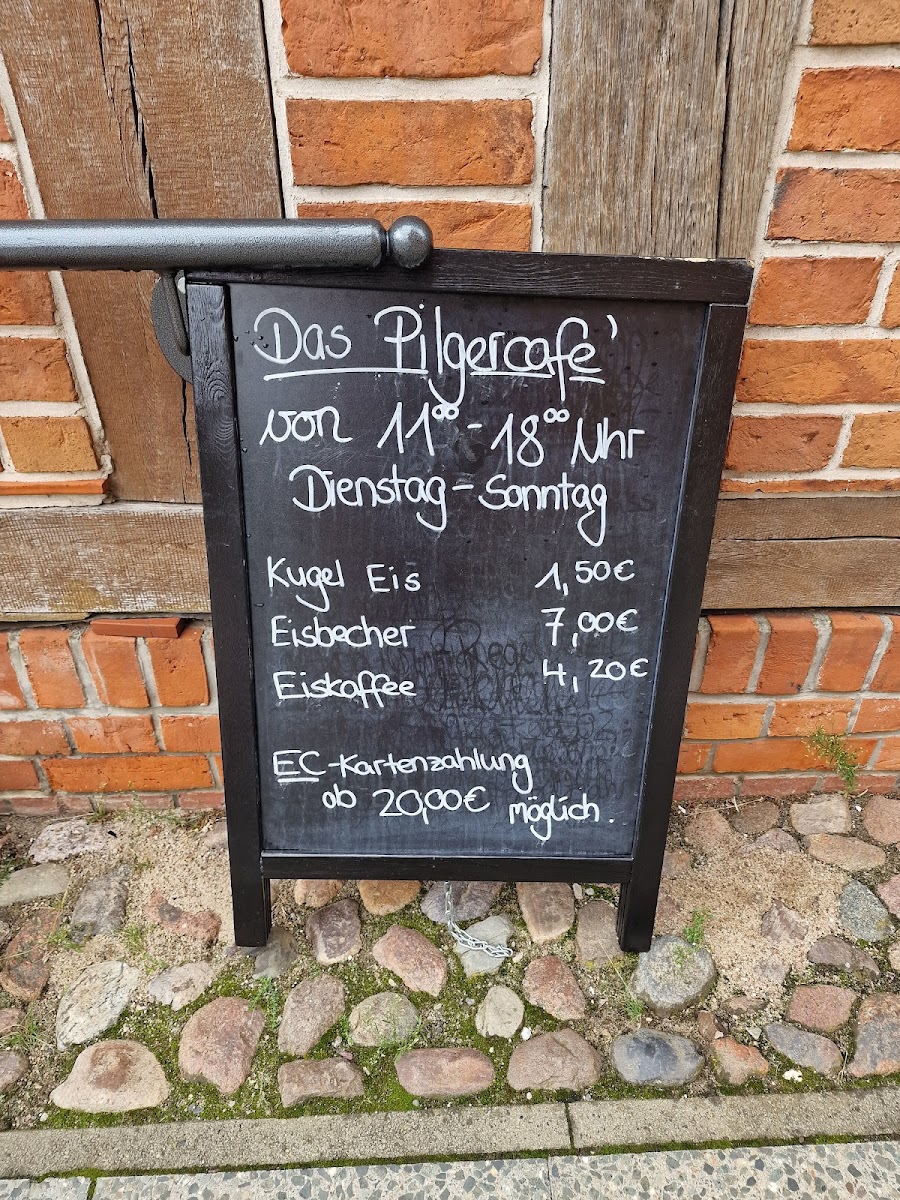 Das Pilgercafé
von 11⁰⁰ - 18⁰⁰ Uhr
Dienstag - Sonntag
Kugel Eis 1,50€
Eisbecher 7,00€
Eiskaffee 4,20€
EC-Kartenzahlung
ab 20,00€ möglich.